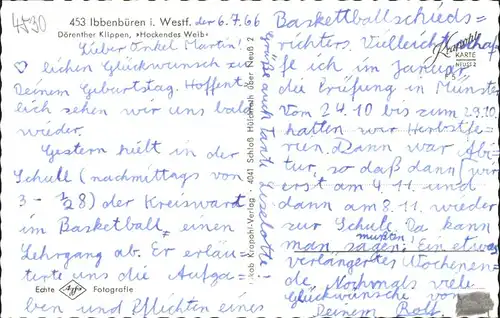 4530
453 Ibbenbüren i. Westf. der 6.7.66
Dörenther Klippen, »Hockendes Weib«
Lieber Onkel Martin!
♡lichen Glückwunsch zu
Deinem Geburtstag. Hoffent
lich sehen wir uns bald
wieder.
Gestern hielt in der
Schule (nachmittags von
3 - ½8) der Kreiswart
im Basketball einen
Lehrgang ab. Er erläu=
terte uns die Aufga=
ben und Pflichten eines
Echte Fotografie
Krapohl-Verlag · 4041 Schloß Hülchrath über Neuß 2
Grüße auch Tante Liselotte!
Krapohl
KARTE
NEUSS 2
Basketballschieds=
richters. Vielleicht schaf
fe ich im Januar
die Prüfung in Münster
Vom 24.10 bis zum 29.10.
hatten wir Herbstfe=
rien. Dann war Abi=
tur, so daß dann wir
erst am 4.11. und
dann am 8.11. wieder
zur Schule mußten! Da kann
man sagen: Ein etwas
verlängertes Wochenen=
de. Nochmals viele
Glückwünsche von
Deinem Rolf